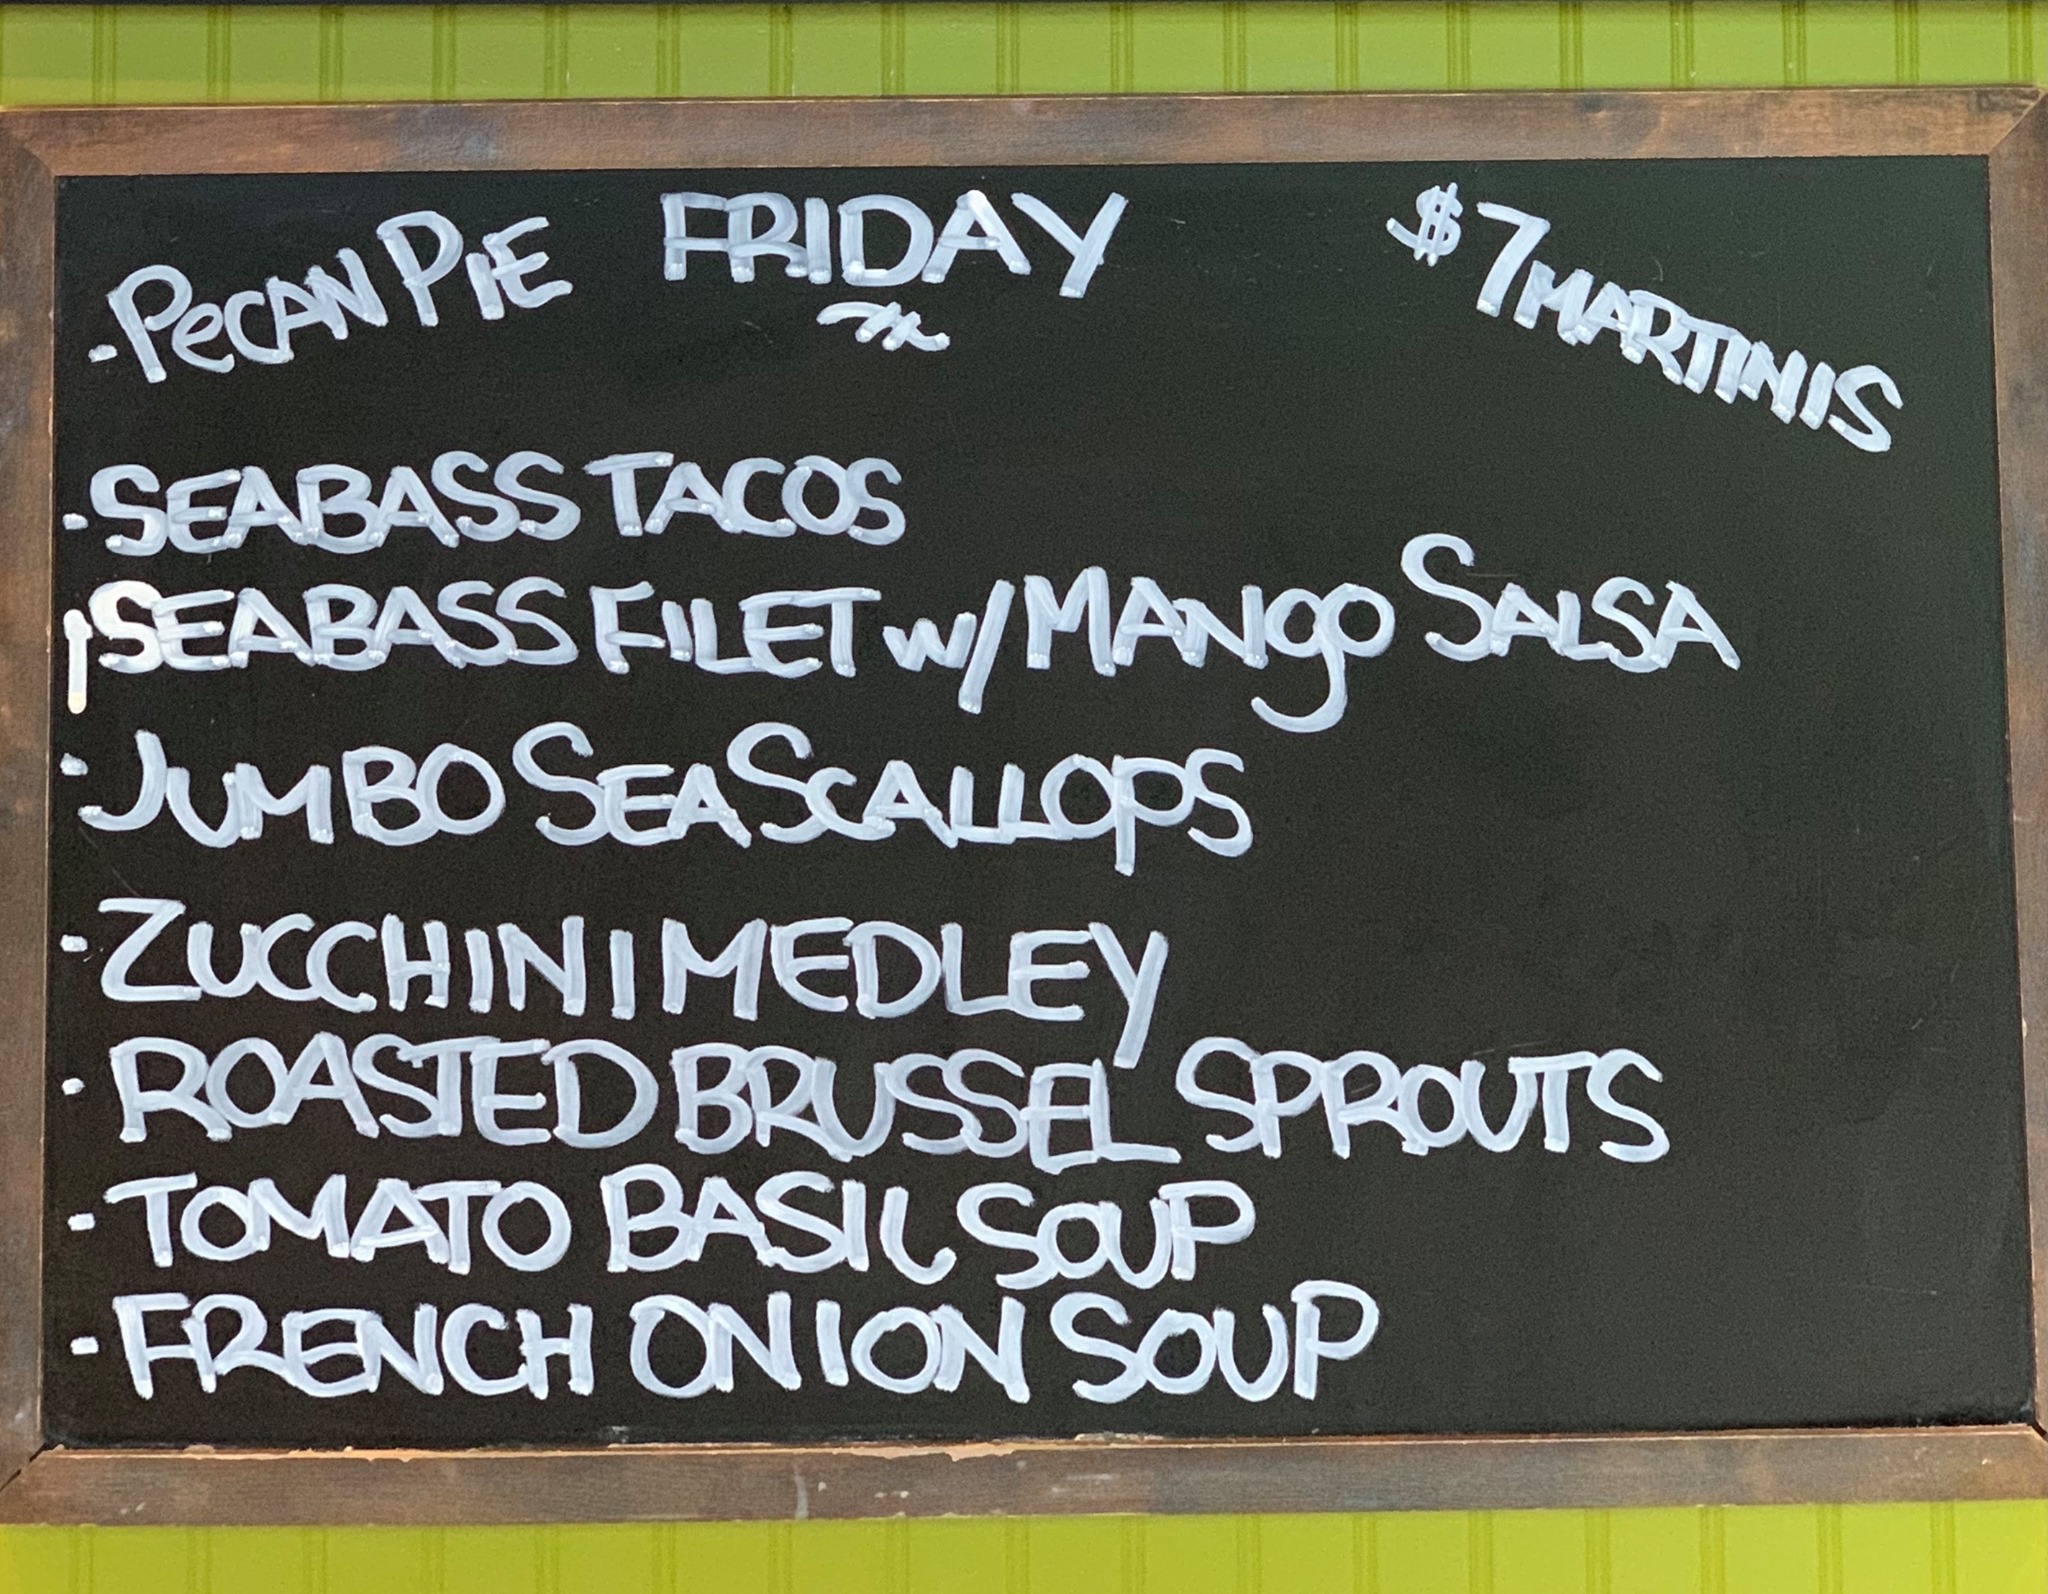 • PECAN PIE
FRIDAY
$7 MARTINIS
• SEABASS TACOS
SEABASS FILET w/ MANgO SALSA
• JUMBO SEA SCALLOPS
• ZUCCHINI MEDLEY
• ROASTED BRUSSEL SPROUTS
• TOMATO BASIL SOUP
• FRENCH ONION SOUP